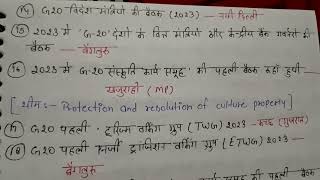 (14) G20 विदेश मंत्रियों की बैठक (2023) — नयी दिल्ली
(15) 2023 में 'G-20' देशों के वित्त मंत्रियों और केन्द्रीय बैंक गवर्नरों की
बैठक — बैंगलुरु
(16) 2023 में G-20 संस्कृति कार्य समूह' की पहली बैठक कहाँ हुयी
खजुराहो (MP)
[थीम :- Protection and resolution of culture property]
(17) G20 पहली 'टूरिज्म वर्किंग ग्रुप (TWG) 2023 - कच्छ (गुजरात)
(18) G20 पहली एनर्जी ट्रांजिशन वर्किंग ग्रुप (ETWG) 2023 —
बैंगलुरु
की पहली बैठक